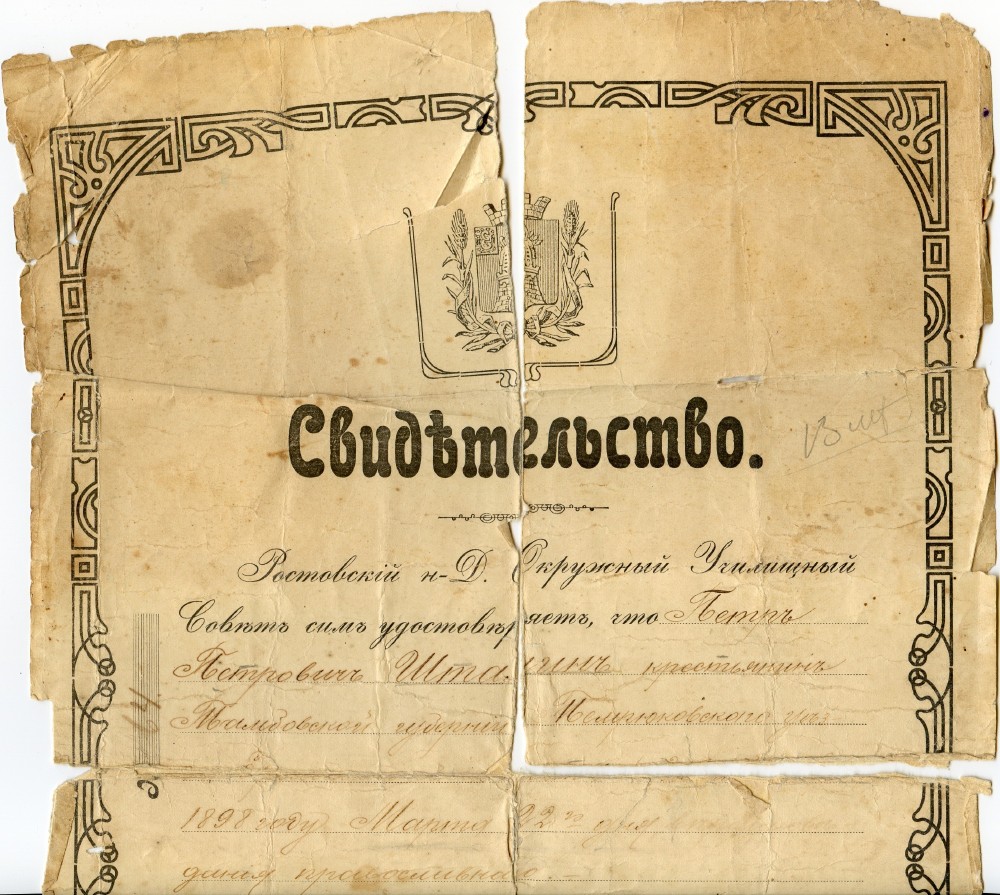 Свидѣтельство.
Ростовскій н-Д. Окружный Училищный
Совѣтъ симъ удостовѣряетъ, что Петръ
Петровичъ крестьянинъ
Тамбовской губерніи
1898 году Марта 22 го дня
православнаго.